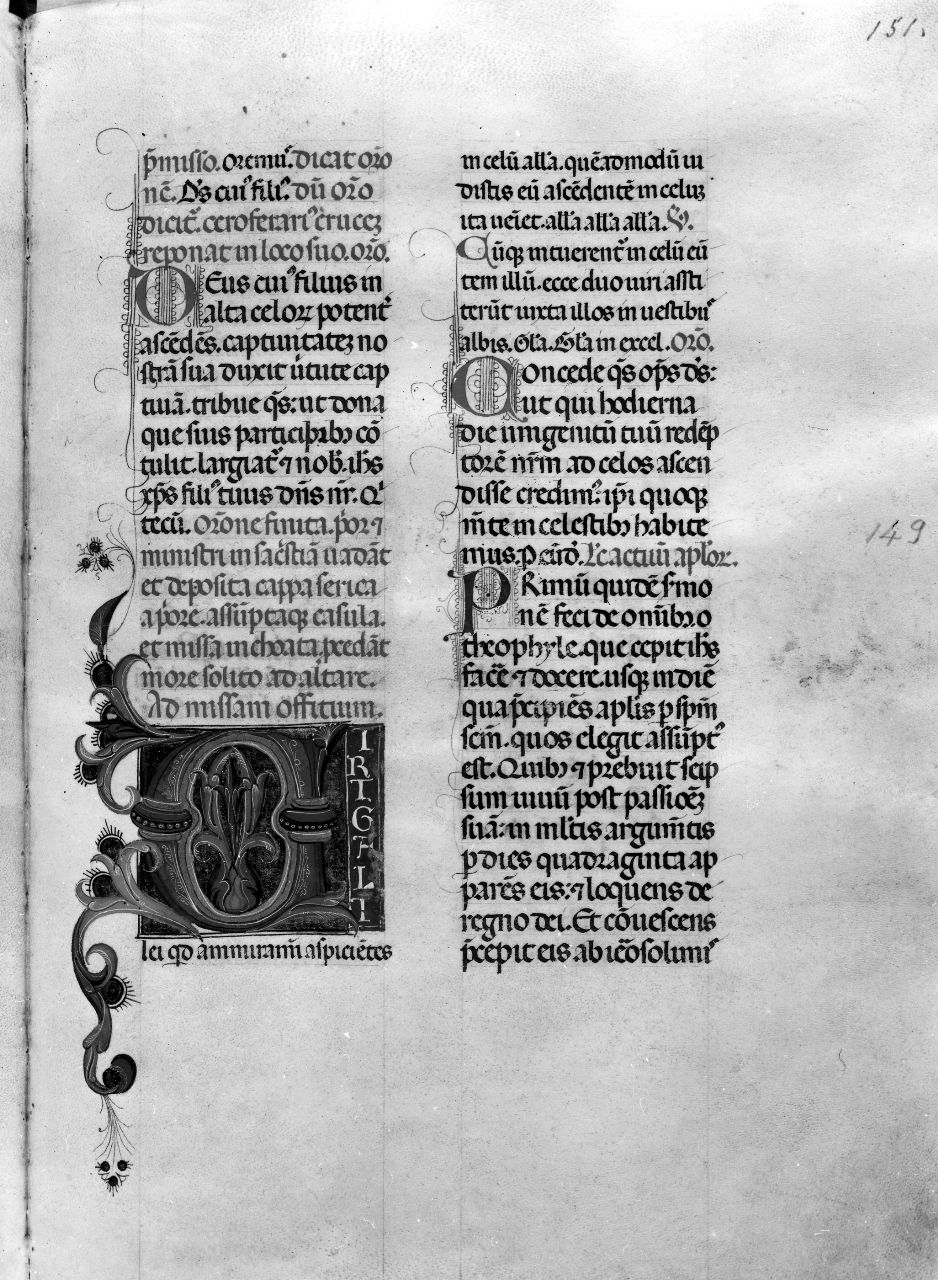 151.
p̄missō. oremus. dicat orō
nē. Ds̄ cui' fili'. dū orō
dicit̄. ceroferari' crucez
reponat in loco suo. orō.
Deus cui' filius in
alta celorꝝ potent̓
ascēdēs. captiuitatez no
strā sua duxit ūtute cap
tiuā. tribue qs̄: ut dona
que suis participibꝰ cō
tulit. largiat̓ ⁊ nob. ihs̄
xp̄s fili' tuus dn̄s nr̄. Q'
tecū. Orōne finita. p̓or ⁊
ministri in sac̓stiā uadāt
et deposita cappa serica
a p̓ore. assūptaqꝫ casula.
et missa inchoata. p̄cedāt
more solito ad altare.
Ad missam offitium.
VIRI GALI
lei qd ammiramī aspiciētes
in celū alla. quēadmodū ui
distis eū ascēdentē in celuꝫ
ita ueīet. alla alla alla. V̄.
Cūqꝫ intuerent̓ in celū eū
tem illū. ecce duo uiri assti
terūt iuxta illos in uestibꝰ
albis. Gla. Gla in excel. Orō.
Concede qs̄ op̄s ds̄:
ut qui hodierna
die unigenitū tuū redēp
torē nr̄m ad celos ascen
disse credimꝰ. ip̄i quoqꝫ
mēte in celestibꝰ habite
mus. P eūd̄. Lc̄ actuū aplōr.
149
Primū quidē sm̄o
nē feci de omībꝰ o
theophyle. que cepit ihs̄
facē ⁊ docere. usqꝫ in diē
qua p̄cipiēs aplīs p sp̄m
scm̄. quos elegit assūpt'
est. Quibꝰ ⁊ prebuit seip
sum uiuū post passiōeꝫ
suā: in ml̄tis argum̄tis
p dies quadraginta ap
parēs eis: ⁊ loquens de
regno dei. Et cōuescens
p̄cepit eis ab ieōsolimi'